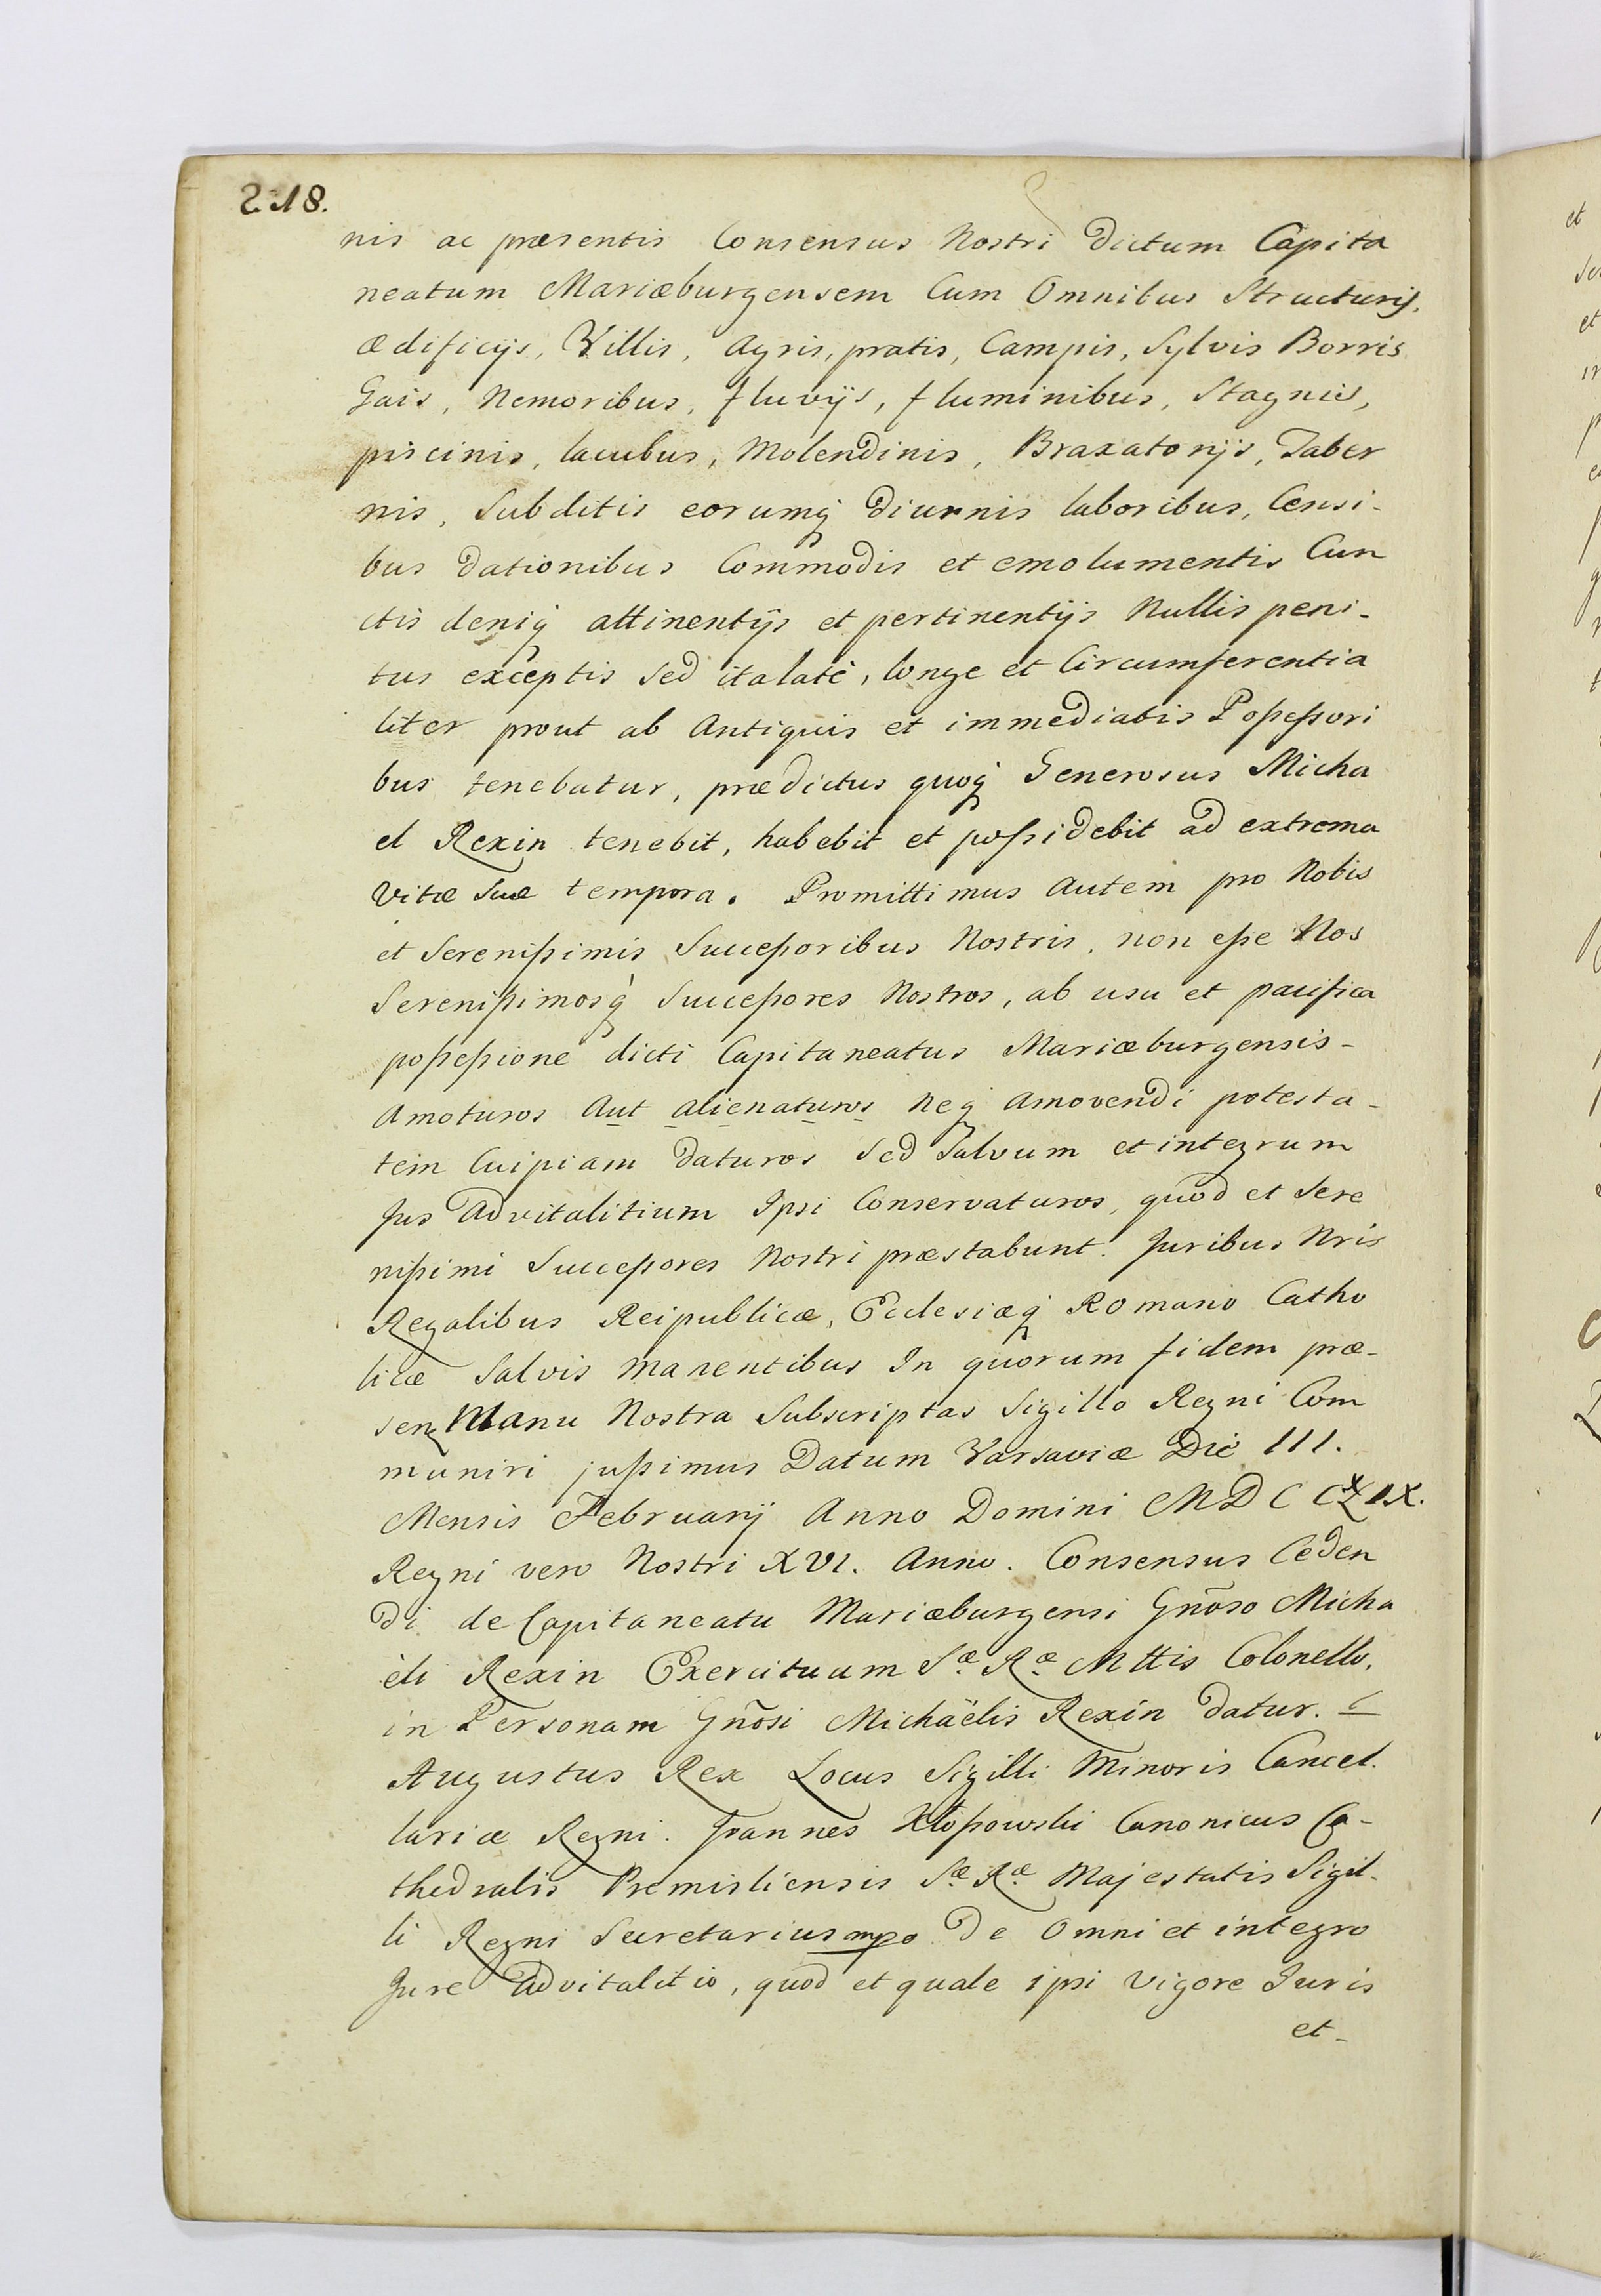 218.
nis ac præsentis Consensus Nostri dictum Capita
neatum Mariæburgensem Cum Omnibus Structurijs,
ædificijs, Villis, Agris, pratis, Campis, Sylvis Borris
Gais, Nemoribus, fluvijs, fluminibus, Stagnis,
piscinis, lacubus, Molendinis, Braxatorijs, Taber
nis, Subditis eorumq̧ diurnis laboribus, Censi-
bus dationibus Commodis et emolumentis Cun
ctis deniq̧ attinentijs et pertinentijs Nullis peni-
tus exceptis Sed italatè, longe et Circumferentia
liter prout ab Antiquis et immediatis Poßeßori
bus tenebatur, prædictus quoq̧ Generosus Micha
el Rexin tenebit, habebit et poßidebit ad extrema
Vitæ Suæ tempora. Promittimus Autem pro Nobis
et Serenißimis Succeßoribus Nostris, non eße Nos
Serenißimosq̧ Succeßores Nostros, ab usu et pacifica
poßeßione dicti Capitaneatus Mariæburgensis-
Amoturos Aut alienaturos Neq̧ Amovendi potesta-
tem Cuipiam daturos Sed Salvum et integrum
Jus Advitalitium Ipsi Conservaturos, quod et Sere
nißimi Succeßores Nostri præstabunt. Juribus Nris
Regalibus Reipublicæ, Ecclesiæq̧ Romano Catho
licæ Salvis manentibus In quorum fidem præ-
senz Manu Nostra Subscriptas Sigillo Regni Com
muniri jußimus Datum Varsaviæ Die III.
Mensis Februarij Anno Domini MDCCXIX.
Regni vero Nostri XVI. Anno. Consensus Ceden
di de Capitaneatu Mariæburgensi Gnõso Micha
ëli Rexin Exercituum Sæ Ræ Mttis Colonello,
in Personam Gnõsi Michaëlis Rexin datur.
Augustus Rex Locus Sigilli Minoris Cancel.
lariæ Regni. Joannes Kłoßowski Canonicus Ca-
thedralis Premisliensis Sæ Ræ Majestatis Sigil-
li Regni Secretarius mpo De Omni et integro
Jure Advitalitio, quod et quale ipsi vigore Juris
et-